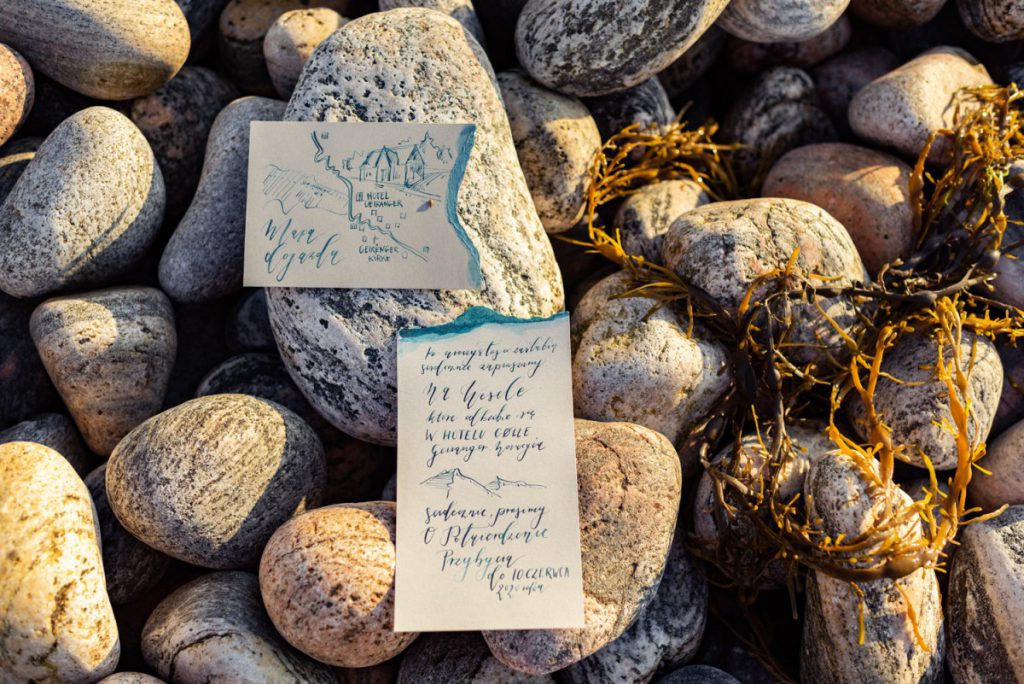 HOTEL
GEIRANGER
Mapa
dojazdu
GEIRANGER
KIRKE
Po uroczystości zaślubin
serdecznie zapraszamy
Na Wesele
które odbędzie się
W HOTELU
Geiranger Norwegia
Serdecznie prosimy
O Potwierdzenie
Przybycia
do 10 CZERWCA
2020 roku